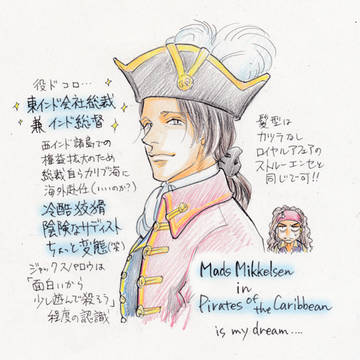 役ドコロ…
東インド会社総裁
兼インド総督
西インド諸島での
権益拡大のため
総裁自らカリブ海に
海外赴任(いいのか?)
冷酷狡猾
陰険なサディスト
ちょっと変態(笑)
ジャックスパロウは
「面白いから
少し遊んで殺ろう」
程度の認識
髪型は
カツラなし
ロイヤルアフェアの
ストルーエンセと
同じで可!!
Mads Mikkelsen
in
Pirates of the Caribbean
is my dream....